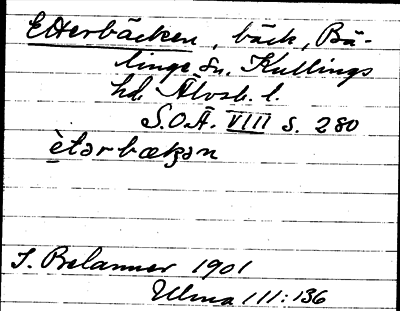 Etterbäcken, bäck, Bä-
linge sn, Kullings
hd. Älvsb. l.
S.O.Ä. VIII s. 280
ètərbækən
1901
Ulma 111:136